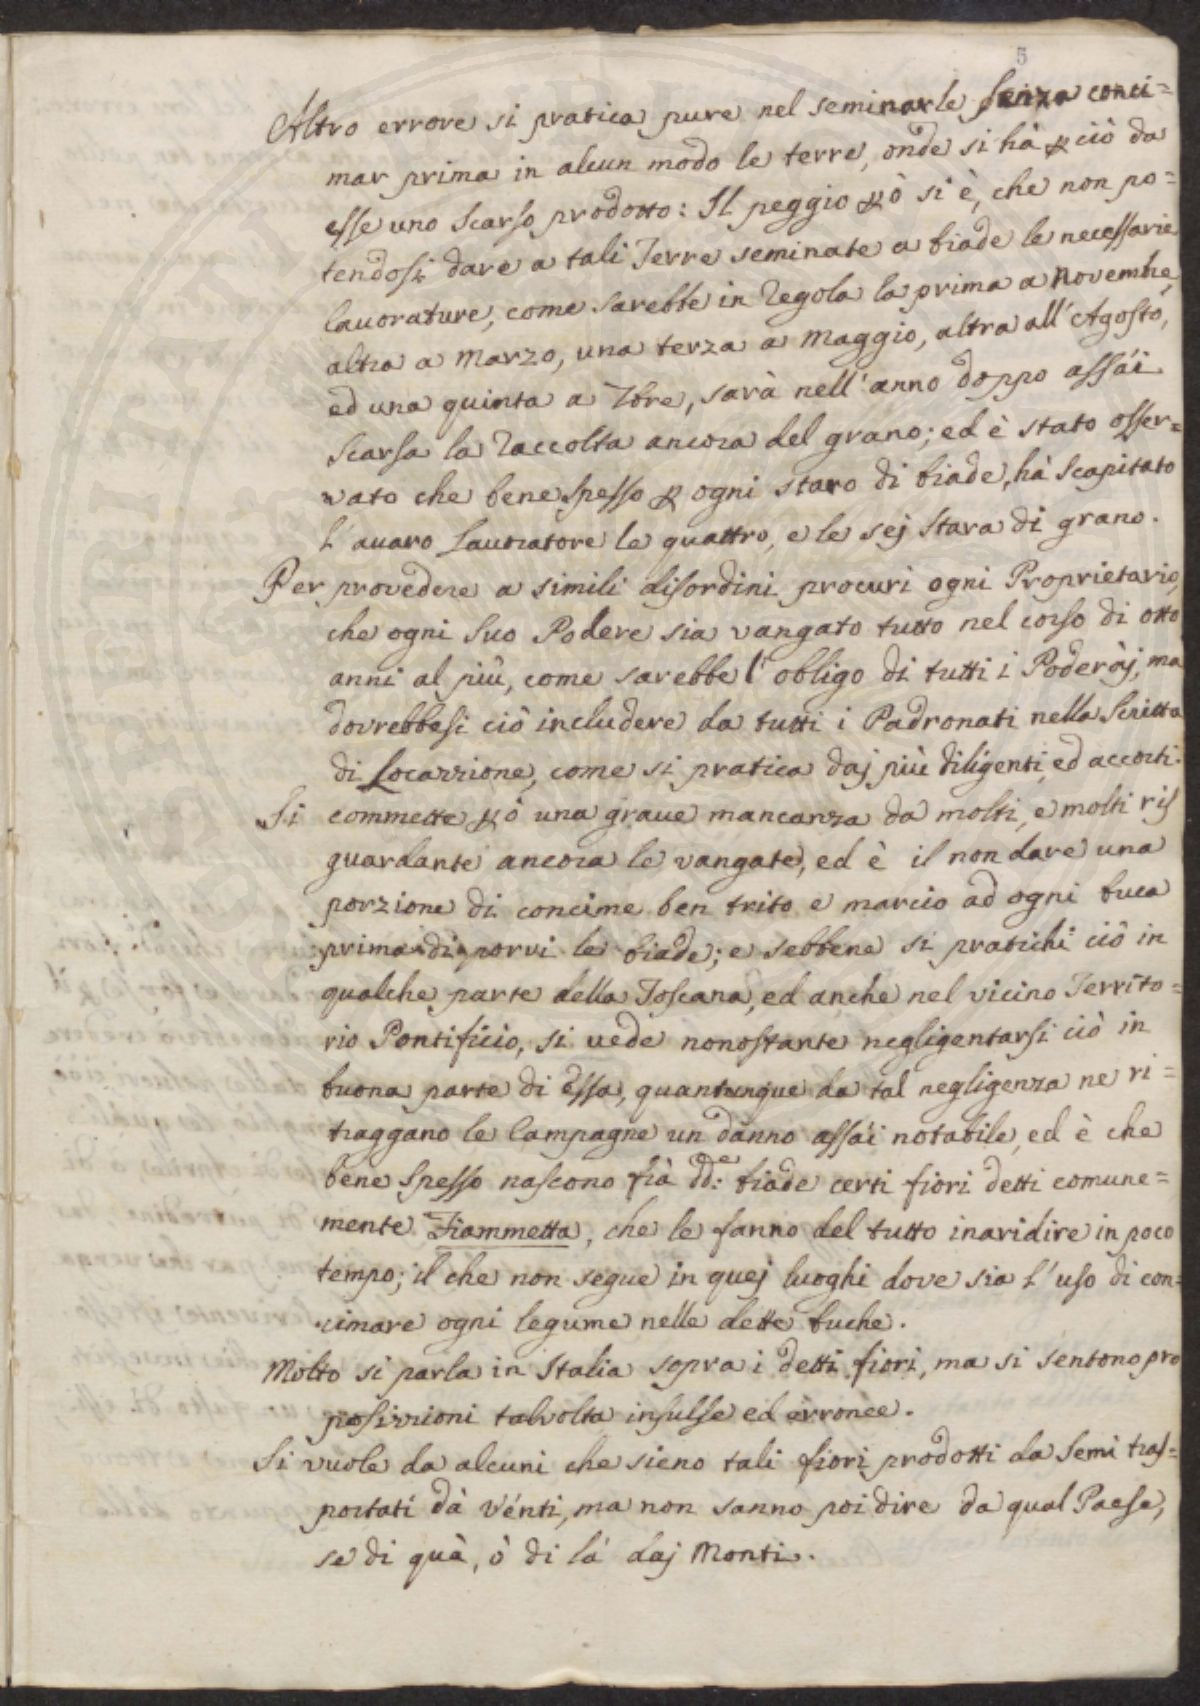 5
Altro errore si pratica pure nel seminarle senza conci=
mar prima in alcun modo le terre, onde si hà p ciò da
esse uno scarso prodotto: Il peggio pò si è, che non po=
tendosi dare a tali Terre seminate a biade le necessarie
lauorature, come sarebbe in Regola la prima a Novembre,
altra a Marzo, una terza a Maggio, altra all'Agosto,
ed una quinta a 7bre, sarà nell'anno doppo assái
scarsa la Raccolta ancora del grano; ed è stato osser=
vato che bene spesso p ogni staro di biade, hà scapitato
l'auaro Lauoratore le quattro, e le sej stara di grano.
Per provedere a simili disordini procuri ogni Proprietario,
che ogni suo Podere sia vangato tutto nel corso di otto
anni al più, come sarebbe l'obligo di tutti i Poderàj, ma
dovrebbesi ciò includere da tutti i Padronati nella Scritta
di Locazzione, come si pratica daj più diligenti, ed accorti.
Si commette pò una graue mancanza da molti, e molti ris
guardante ancora le vangate, ed è il non dare una
porzione di concime ben trito e marcio ad ogni buca
prima di porvi le biade; e sebbene si pratichi ciò in
qualche parte della Toscana, ed anche nel vicino Territo=
rio Pontificio, si uede nonostante negligentarsi ciò in
buona parte di essa, quantunque da tal negligenza ne ri=
traggano le Campagne un danno assái notabile, ed è che
bene spesso nascono frà dd:e biade certi fiori detti comune=
mente Fiammetta, che le fanno del tutto inaridire in poco
tempo; il che non segue in quej luoghi dove sia l'uso di con=
cimare ogni legume nelle dette buche.
Molto si parla in Italia sopra i detti fiori, ma si sentono pro
posizzioni talvolta insulse ed erronèe.
Si vuole da alcuni che sieno tali fiori prodotti da semi tras=
portati dà Vénti, ma non sanno poi dire da qual Paese,
se di quà, ò di lá daj Monti.